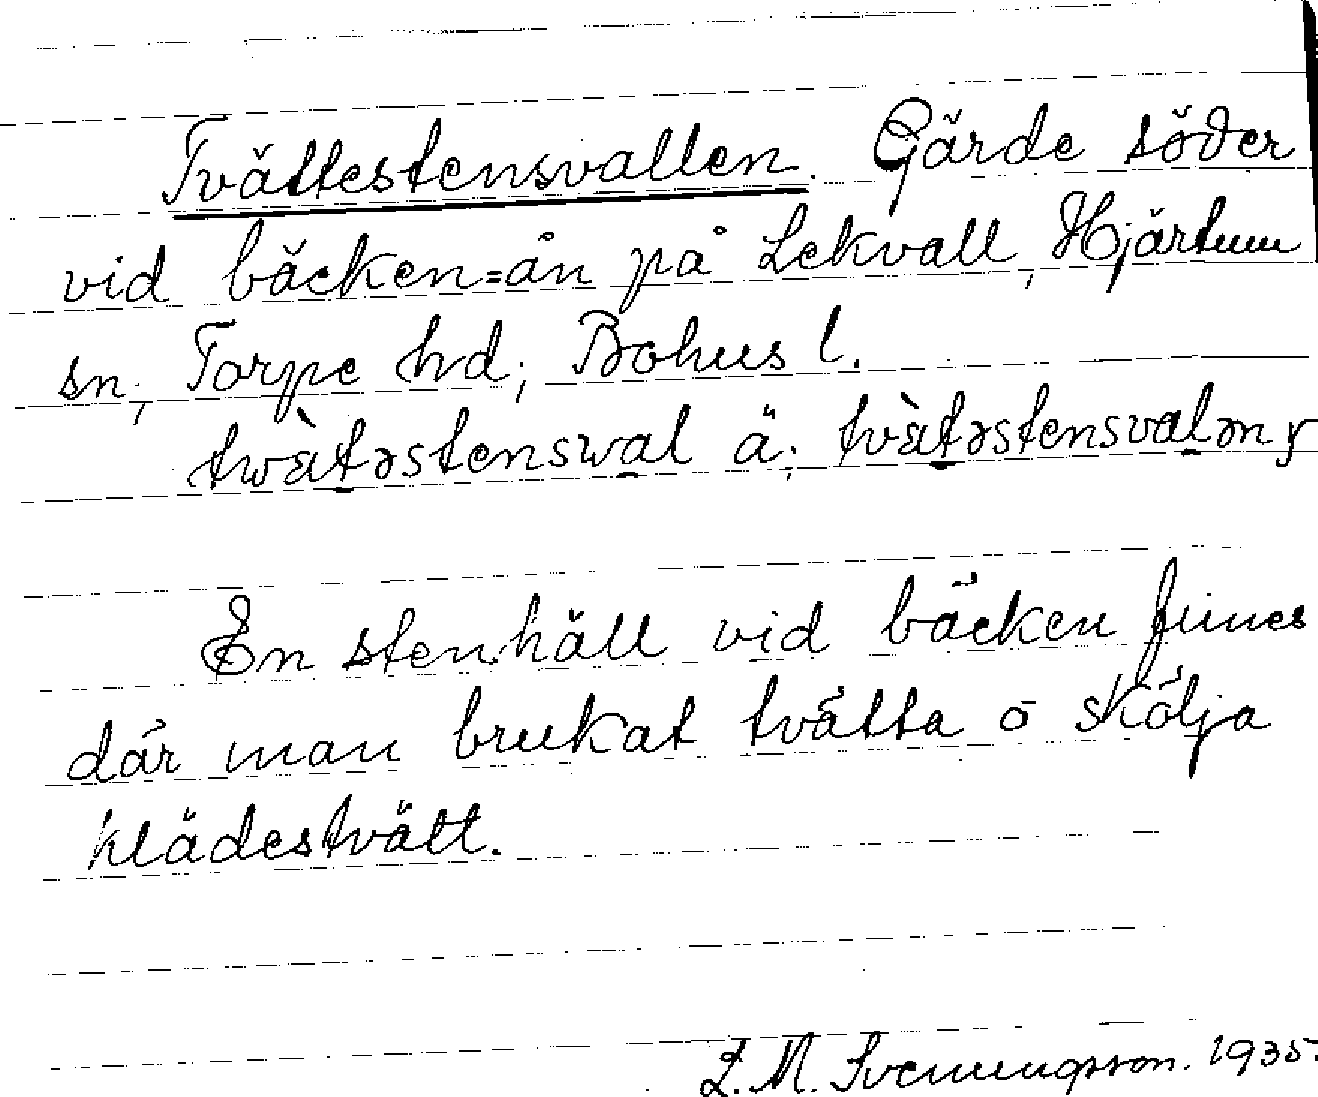 Tvättestensvallen. Gärde söder
vid bäcken=ån på Lekvall, Hjärtum
sn, Torpe hd, Bohus l.
twὰtəstenswal ä, tvὰtəstensvalən
En stenhäll vid bäcken finnes
där man brukat tvätta o skölja
klädestvätt.
L. M. Svenningsson. 1935.